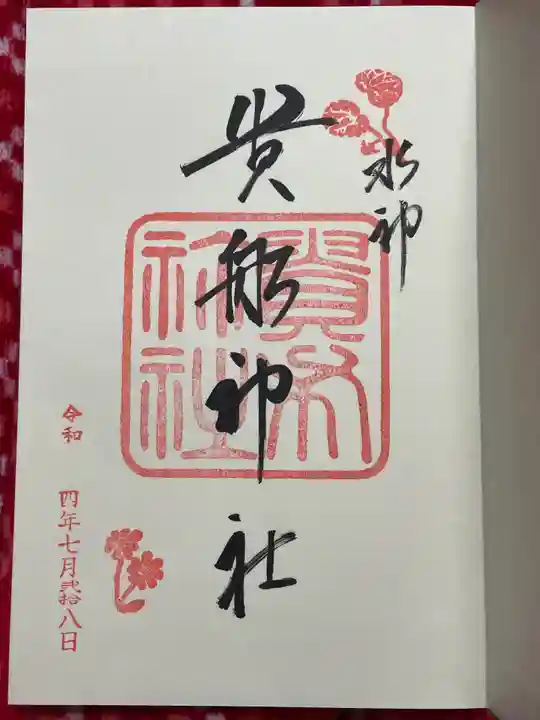 水神
貴船神社
令和 四年七月弐拾八日